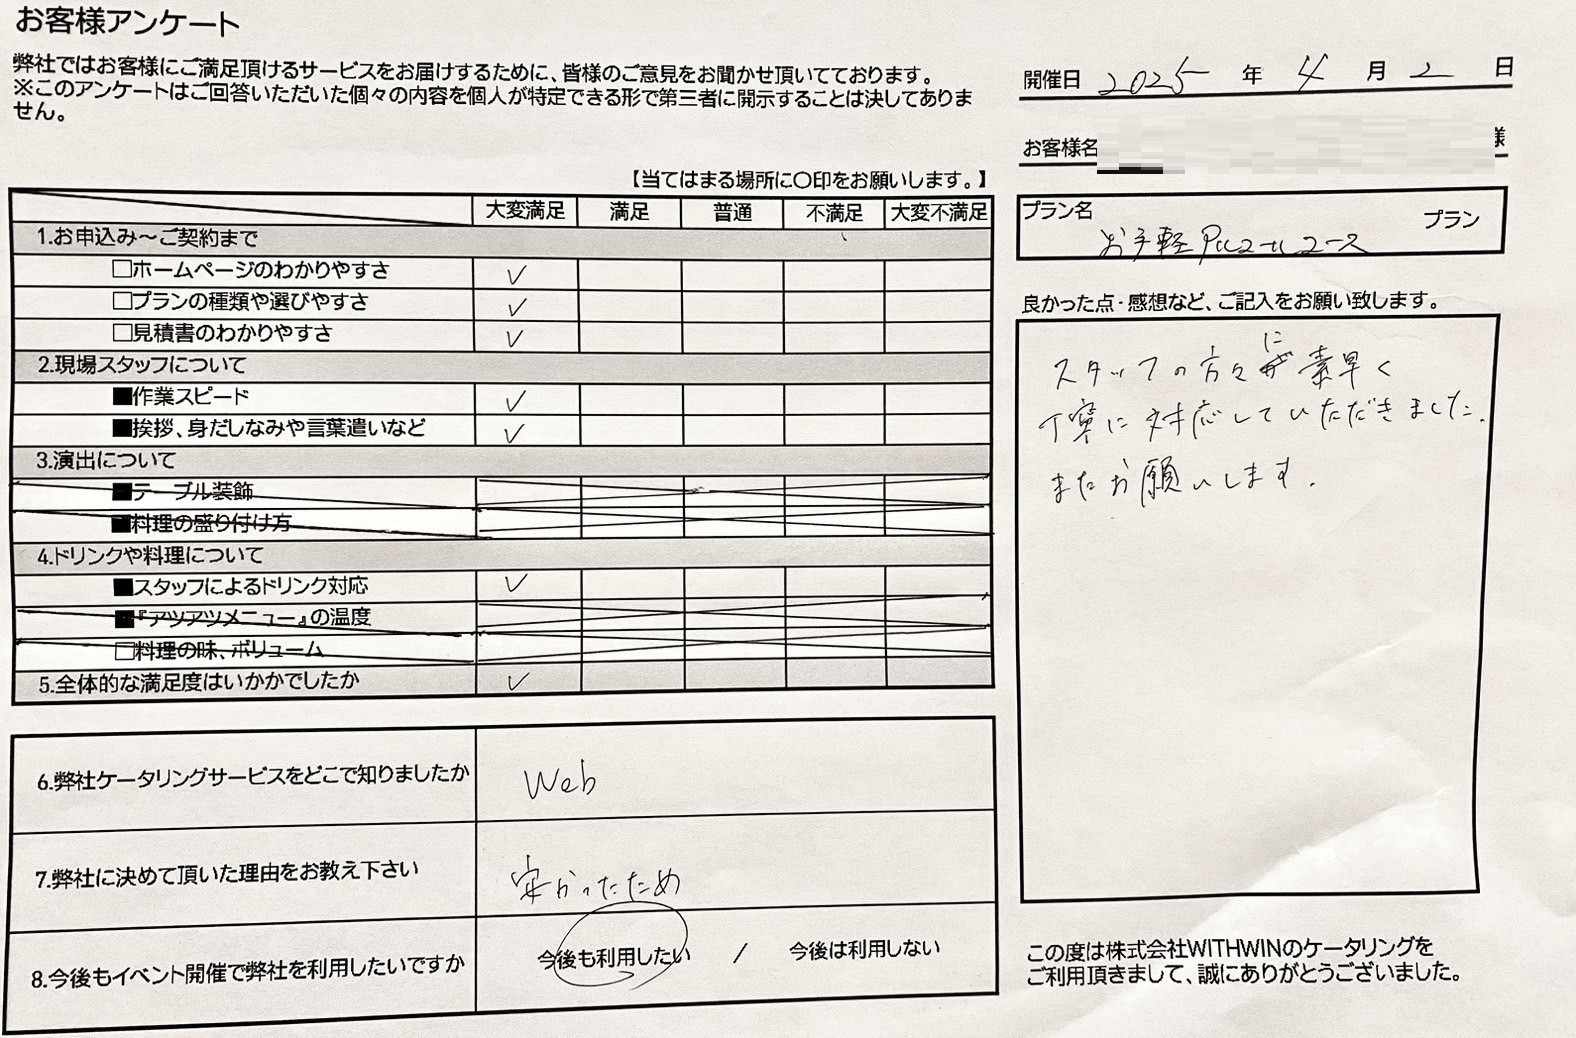 お客様アンケート
弊社ではお客様にご満足頂けるサービスをお届けするために、皆様のご意見をお聞かせ頂いてております。
※このアンケートはご回答いただいた個々の内容を個人が特定できる形で第三者に開示することは決してありま
せん。
【当てはまる場所に〇印をお願いします。】
大変満足 満足 普通 不満足 大変不満足
1.お申込み～ご契約まで
□ホームページのわかりやすさ ✓
□プランの種類や選びやすさ ✓
□見積書のわかりやすさ ✓
2.現場スタッフについて
■作業スピード ✓
■挨拶、身だしなみや言葉遣いなど ✓
3.演出について
■テーブル装飾
■料理の盛り付け方
4.ドリンクや料理について
■スタッフによるドリンク対応 ✓
■『アツアツメニュー』の温度
□料理の味、ボリューム
5.全体的な満足度はいかかでしたか ✓
6.弊社ケータリングサービスをどこで知りましたか Web
7.弊社に決めて頂いた理由をお教え下さい 安かったため
8.今後もイベント開催で弊社を利用したいですか 今後も利用したい / 今後は利用しない
開催日 2025 年 4 月 2 日
お客様名 様
プラン名 プラン
お手軽 コース
良かった点・感想など、ご記入をお願い致します。
スタッフの方々に素早く
丁寧に対応していただきました。
またお願いします。
この度は株式会社WITHWINのケータリングを
ご利用頂きまして、誠にありがとうございました。